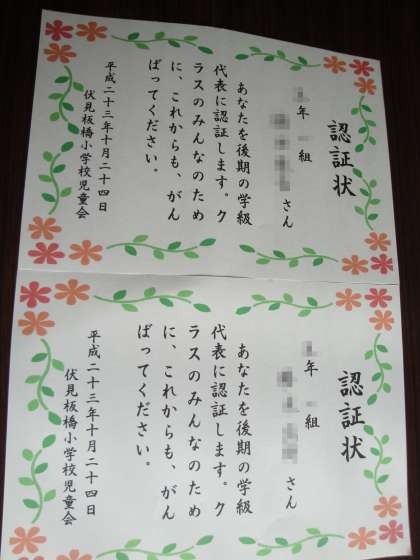 認証状
年 組
さん
あなたを後期の学級
代表に認証します。ク
ラスのみんなのため
に、これからも、がん
ばってください。
平成二十三年十月二十四日
伏見板橋小学校児童会
認証状
年 組
さん
あなたを後期の学級
代表に認証します。ク
ラスのみんなのため
に、これからも、がん
ばってください。
平成二十三年十月二十四日
伏見板橋小学校児童会